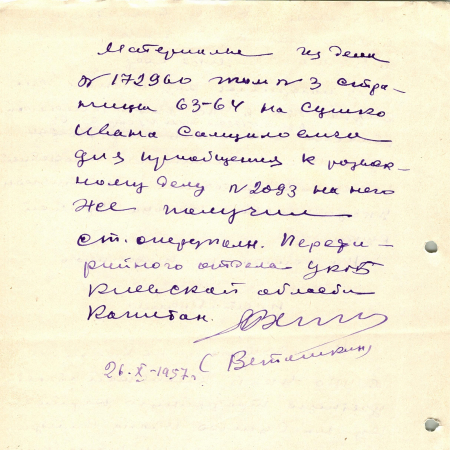 Материалы из дела
№172960 том №3 стра-
ницы 63-64 на Сушко
Ивана Самуиловича
для приобщения к розыск-
ному делу №2093 на него
же получил
ст. оперуполн. Перефе-
рийного отдела УКГБ
Киевской области
Капитан.
(Веташкин)
26.X-1957г.